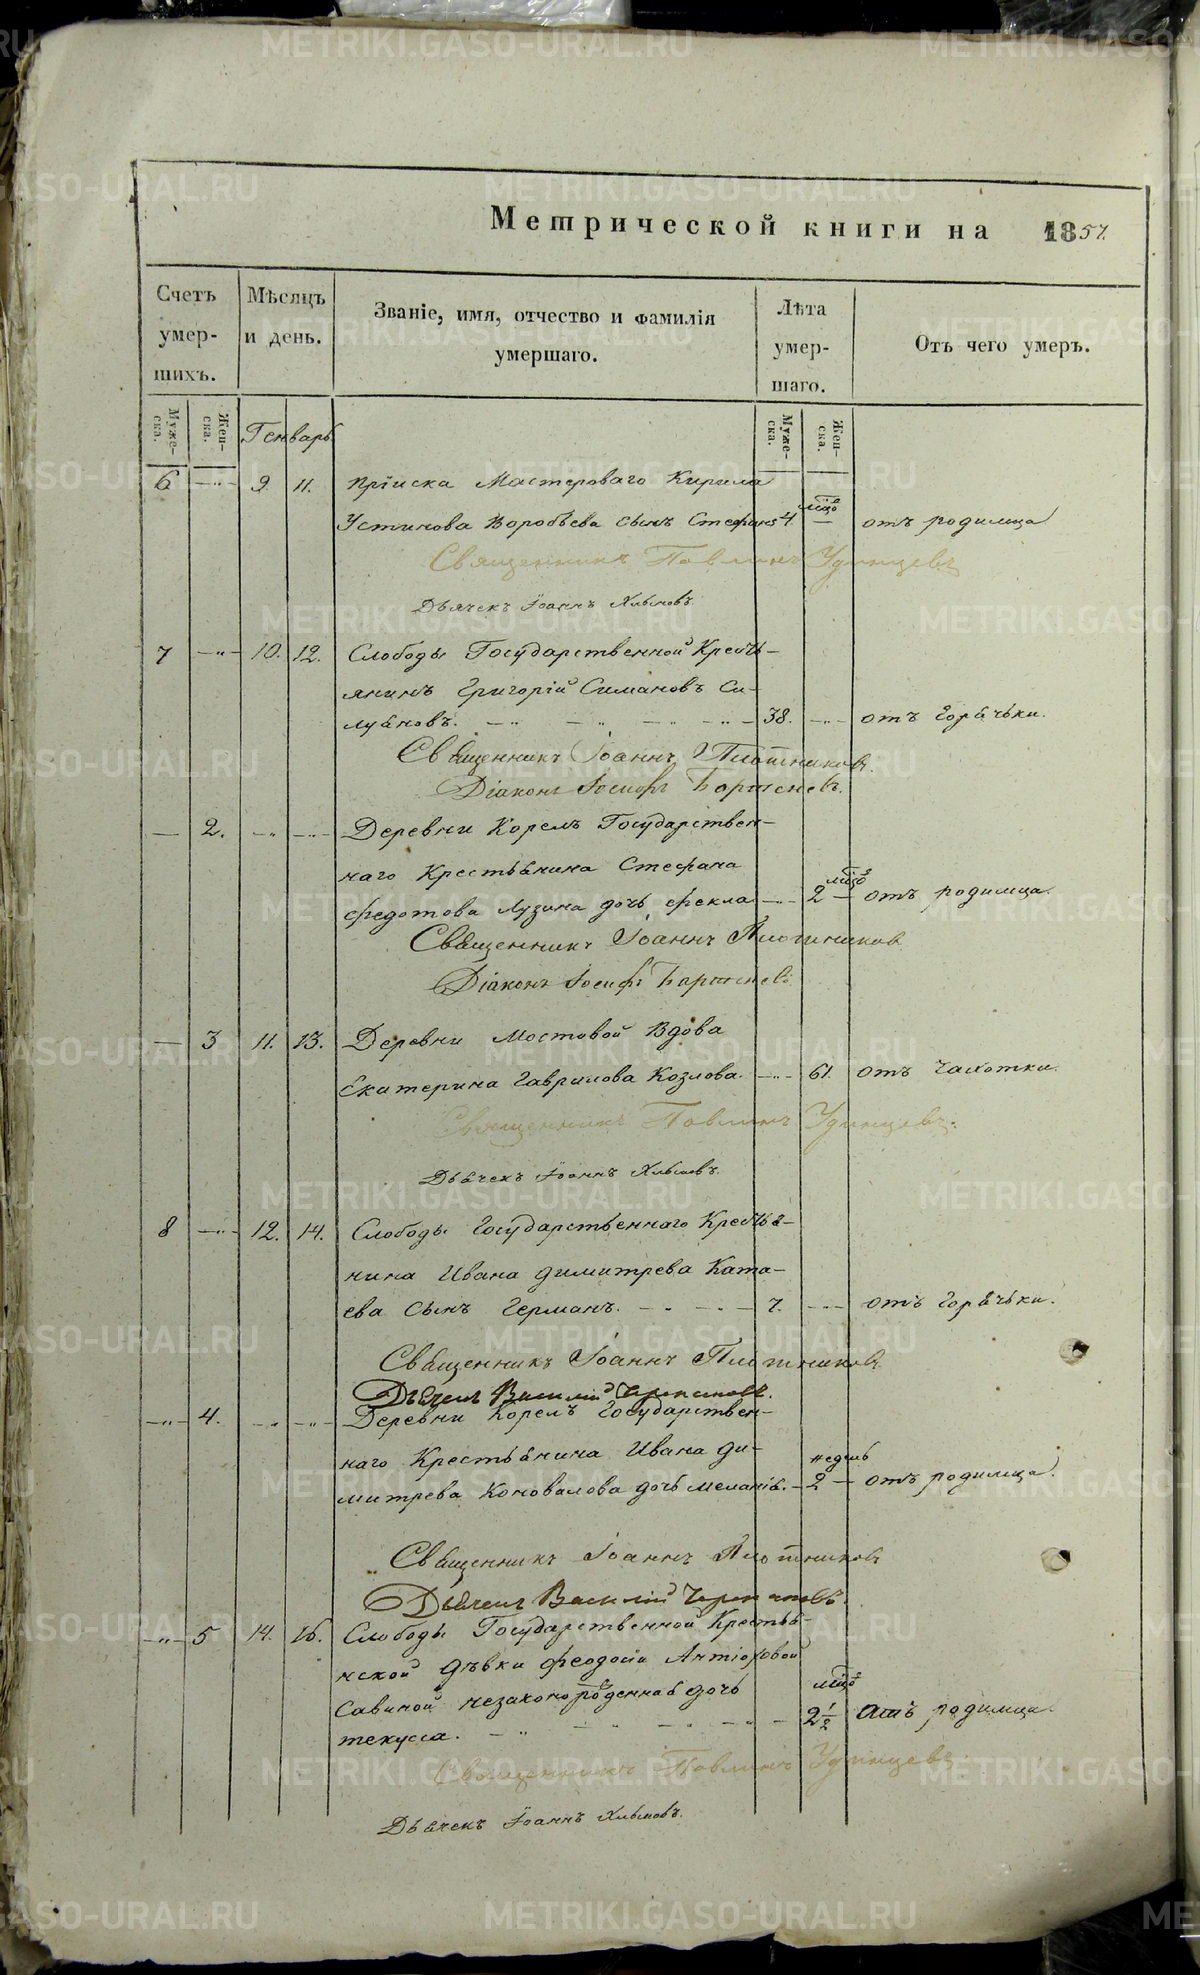 Метрической книги на 1857.
Счетъ умер- шихъ.
Мѣсяцъ и день.
Званіе, имя, отчество и фамилія умершаго.
Лѣта умер- шаго.
Отъ чего умеръ.
Муже- ска.
Жен- ска.
Генварь
Муже- ска.
Жен- ска.
6 —"— 9. 11. Пріиска Мастероваго Кирила
Устинова Воробьева сынъ Стефанъ 4 мцѣ — отъ родимца
Священникъ Павлинъ Удинцевъ
Дьячекъ Іоаннъ Хлыновъ.
7 —"— 10. 12. Слободы Государственной Кресть-
янинъ Григорій Симановъ Си-
луановъ. —"— —"— —"— 38. —"— отъ горячьки.
Священникъ Іоаннъ Плотниковъ.
Діаконъ Іосифъ Бортеневъ.
— 2. —"— —"— Деревни Корелъ Государствен-
наго Крестьянина Стефана
Федотова Лузина дочь Фекла —"— 2 мцѣ — отъ родимца.
Священникъ Іоаннъ Плотниковъ
Діаконъ Іосифъ Бортеневъ
— 3 11. 13. Деревни Мостовой Вдова
Екатерина Гаврилова Козлова. —"— 61. отъ чахотки.
Священникъ Павлинъ Удинцевъ.
Дьячекъ Іоаннъ Хлыновъ.
8 —"— 12. 14. Слободы Государственнаго Крестья-
нина Ивана Димитрева Ката-
ева сынъ Германъ. —"— —"— 7. —"— отъ горячьки.
Священникъ Іоаннъ Плотниковъ
Дьячекъ Василій
—"— 4. —"— —"— Деревни Корелъ Государствен-
наго Крестьянина Ивана Ди-
митрева Коновалова дочь Меланія. — 2 недель — отъ родимца.
Священникъ Іоаннъ Плотниковъ
Дьячекъ Василій
—"— 5 14. 16. Слободы Государственной Крестья-
нской дѣвки Феодосіи Антіоховой
Савиной незаконорожденная дочь
текусса. —"— —"— —"— —"— 2 1/2 мцѣ отъ родимца.
Священникъ Павлинъ Удинцевъ.
Дьячекъ Іоаннъ Хлыновъ.
METRIKI.GASO-URAL.RU